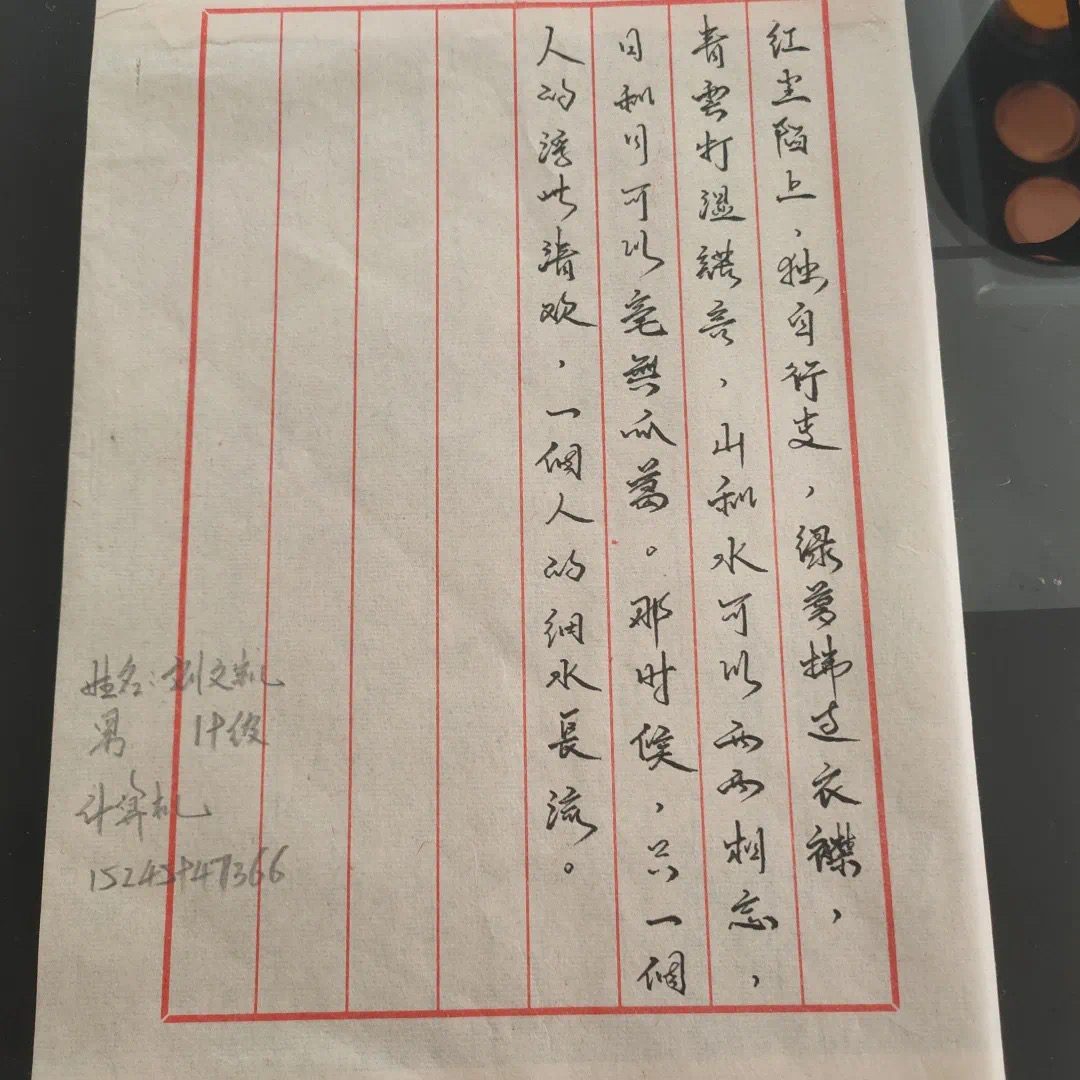 红尘陌上，独自行走，绿萝拂过衣襟，
青雲打湿諾言，山和水可以两两相忘，
日和月可以毫無瓜葛。那时候，只一個
人的浮世清欢，一個人的细水長流。
姓名：刘文凯
男
计算机